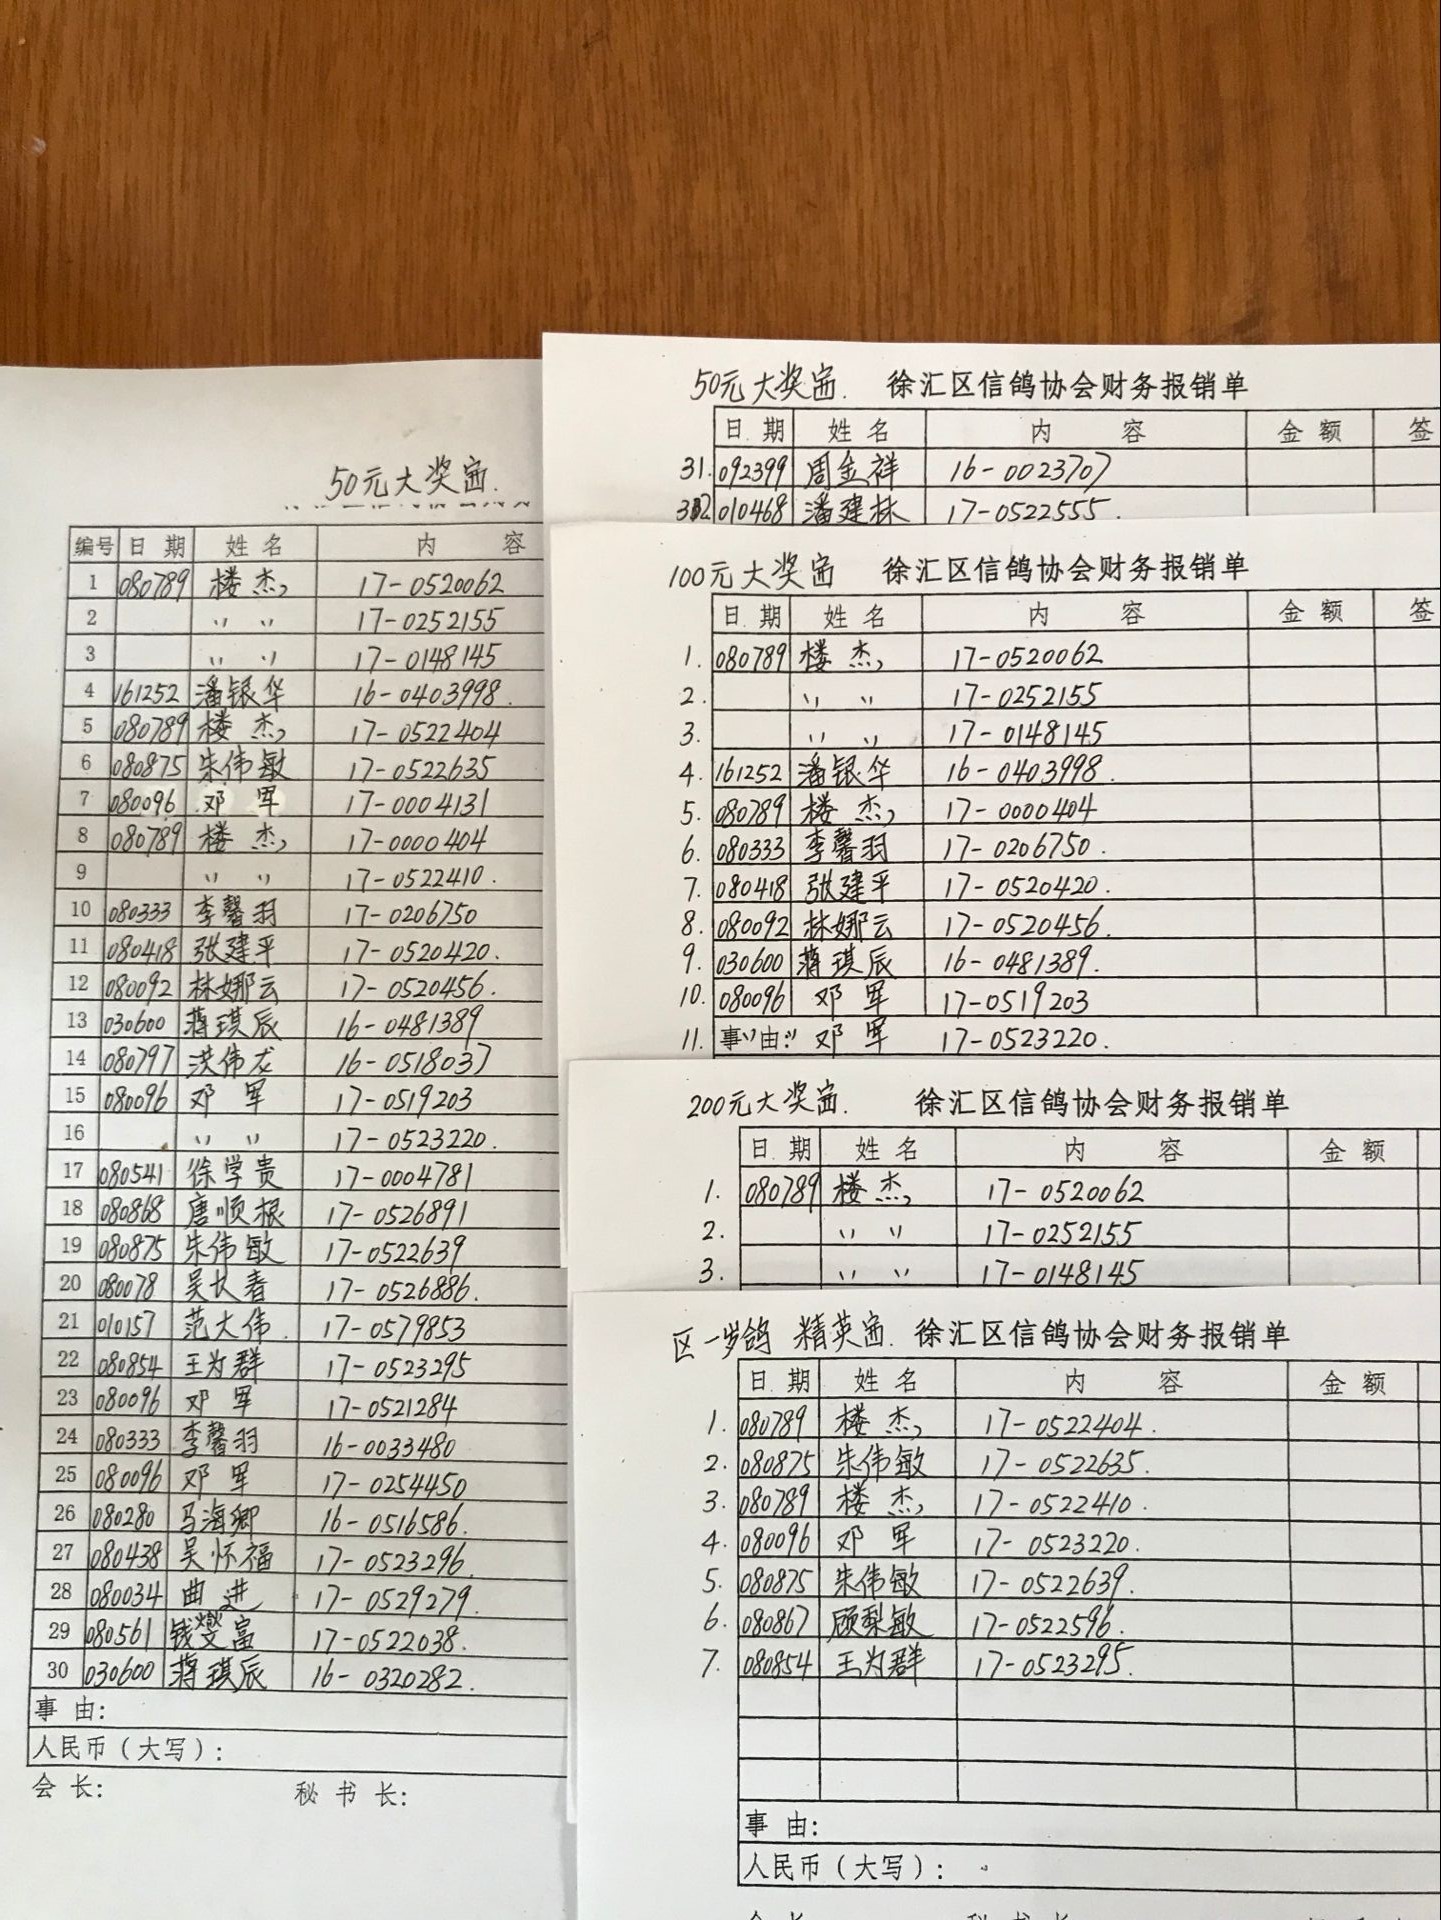 50元大奖画.
编号 日 期 姓 名 内 容
1 080789 楼 杰 17-0520062
2 〃 〃 17-0252155
3 〃 〃 17-0148145
4 161252 潘银华 16-0403998.
5 080789 楼 杰 17-0522404
6 080875 朱伟敏 17-0522635
7 080096 邓 军 17-0004131
8 080789 楼 杰 17-0000404
9 〃 〃 17-0522410.
10 080333 李馨羽 17-0206750
11 080418 张建平 17-0520420.
12 080092 林娜云 17-0520456.
13 030600 蒋琪辰 16-0481389
14 080797 洪伟龙 16-0518037
15 080096 邓 军 17-0519203
16 〃 〃 17-0523220.
17 080541 徐学贵 17-0004781
18 080868 唐顺根 17-0526891
19 080875 朱伟敏 17-0522639
20 080078 吴长春 17-0526886.
21 010157 范大伟. 17-0579853
22 080854 王为群 17-0523295
23 080096 邓 军 17-0521284
24 080333 李馨羽 16-0033480
25 080096 邓 军 17-0254450
26 080280 马海卿 16-0516586.
27 080438 吴怀福 17-0523296.
28 080034 曲 进 17-0529279.
29 080561 钱燮富 17-0522038.
30 030600 蒋琪辰 16-0320282.
事 由:
人民币(大写):
会 长: 秘 书 长:
50元大奖画. 徐汇区信鸽协会财务报销单
日 期 姓 名 内 容 金 额 签
31. 092399 周金祥 16-0023707
32 010468 潘建林 17-0522555.
100元大奖画 徐汇区信鸽协会财务报销单
日 期 姓 名 内 容 金 额 签
1. 080789 楼 杰 17-0520062
2. 〃 〃 17-0252155
3. 〃 〃 17-0148145
4. 161252 潘银华 16-0403998.
5. 080789 楼 杰 17-0000404
6. 080333 李馨羽 17-0206750.
7. 080418 张建平 17-0520420.
8. 080092 林娜云 17-0520456.
9. 030600 蒋琪辰 16-0481389.
10. 080096 邓 军 17-0519203
11. 事〃由:〃 邓 军 17-0523220.
200元大奖画. 徐汇区信鸽协会财务报销单
日 期 姓 名 内 容 金 额
1. 080789 楼 杰 17-0520062
2. 〃 〃 17-0252155
3. 〃 〃 17-0148145
区一岁鸽 精英画. 徐汇区信鸽协会财务报销单
日 期 姓 名 内 容 金 额
1. 080789 楼 杰 17-0522404.
2. 080875 朱伟敏 17-0522635.
3. 080789 楼 杰 17-0522410.
4. 080096 邓 军 17-0523220.
5. 080875 朱伟敏 17-0522639.
6. 080867 顾梨敏 17-0522596.
7. 080854 王为群 17-0523295.
事 由:
人民币(大写):